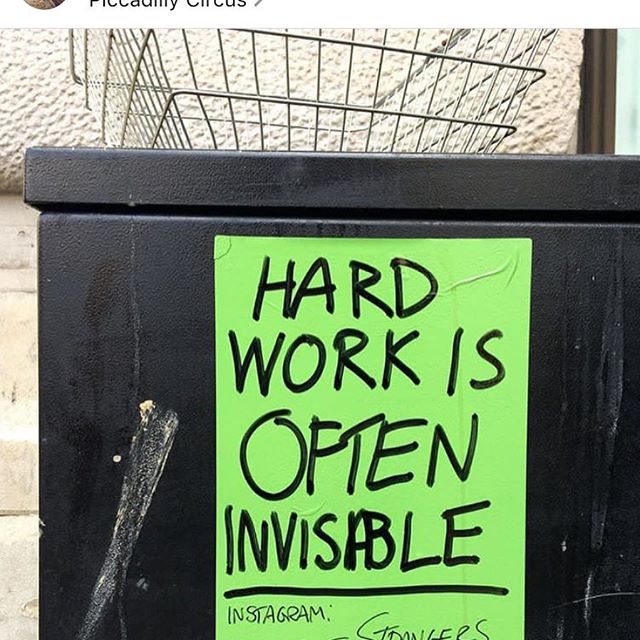 Piccadilly Circus
HARD
WORK IS
OFTEN
INVISIBLE
INSTAGRAM:
STRANGERS